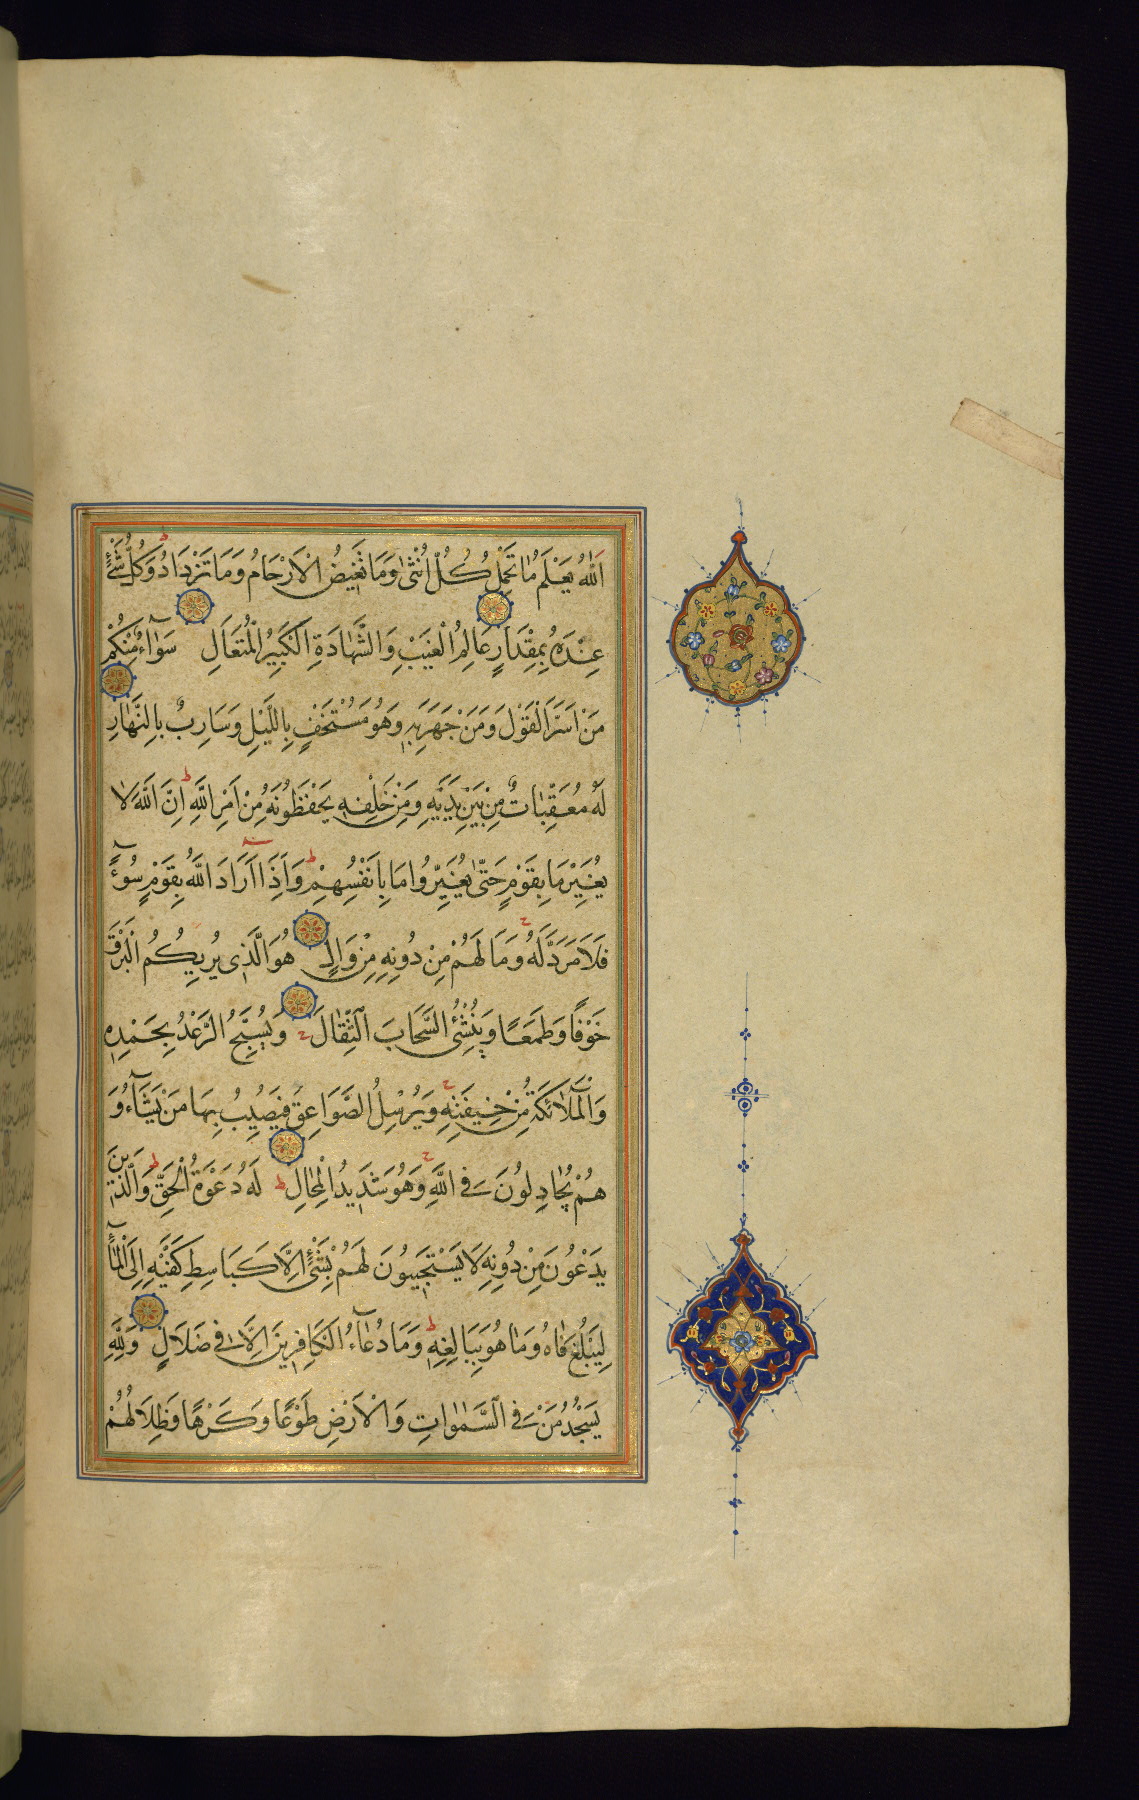 اَللّٰهُ يَعْلَمُ مَا تَحْمِلُ كُلُّ اُنْثٰى وَمَا تَغِيضُ الْاَرْحَامُ وَمَا تَزْدَادُ وَكُلُّ شَيْءٍ
عِنْدَهُ بِمِقْدَارٍ عَالِمُ الْغَيْبِ وَالشَّهَادَةِ الْكَبِيرُ الْمُتَعَالِ سَوَآءٌ مِنْكُمْ
مَنْ اَسَرَّ الْقَوْلَ وَمَنْ جَهَرَ بِهِ وَمَنْ هُوَ مُسْتَخْفٍ بِاللَّيْلِ وَسَارِبٌ بِالنَّهَارِ
لَهُ مُعَقِّبَاتٌ مِنْ بَيْنِ يَدَيْهِ وَمِنْ خَلْفِهِ يَحْفَظُونَهُ مِنْ اَمْرِ اللّٰهِ اِنَّ اللّٰهَ لَا
يُغَيِّرُ مَا بِقَوْمٍ حَتّٰى يُغَيِّرُوا مَا بِاَنْفُسِهِمْ وَاِذَا اَرَادَ اللّٰهُ بِقَوْمٍ سُوٓءًا
فَلَا مَرَدَّ لَهُ وَمَا لَهُمْ مِنْ دُونِهِ مِنْ وَالٍ هُوَ الَّذِى يُرِيكُمُ الْبَرْقَ
خَوْفًا وَطَمَعًا وَيُنْشِئُ السَّحَابَ الثِّقَالَ وَيُسَبِّحُ الرَّعْدُ بِحَمْدِهِ
وَالْمَلَآئِكَةُ مِنْ خِيفَتِهِ وَيُرْسِلُ الصَّوَاعِقَ فَيُصِيبُ بِهَا مَنْ يَشَآءُ وَ
هُمْ يُجَادِلُونَ فِى اللّٰهِ وَهُوَ شَدِيدُ الْمِحَالِ لَهُ دَعْوَةُ الْحَقِّ وَالَّذِينَ
يَدْعُونَ مِنْ دُونِهِ لَا يَسْتَجِيبُونَ لَهُمْ بِشَيْءٍ اِلَّا كَبَاسِطِ كَفَّيْهِ اِلَى الْمَآءِ
لِيَبْلُغَ فَاهُ وَمَا هُوَ بِبَالِغِهِ وَمَا دُعَآءُ الْكَافِرِينَ اِلَّا فِى ضَلَالٍ وَلِلّٰهِ
يَسْجُدُ مَنْ فِى السَّمٰوَاتِ وَالْاَرْضِ طَوْعًا وَكَرْهًا وَظِلَالُهُمْ